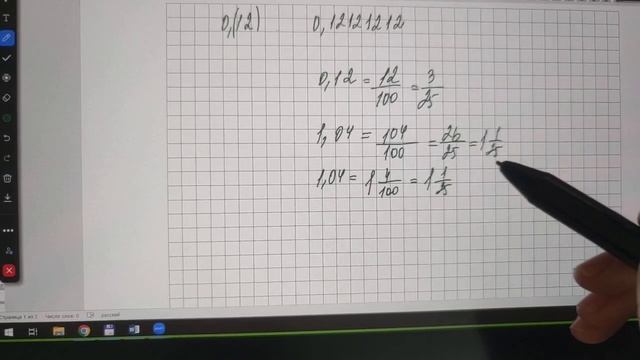 0,(12) 0,12121212
0,12 = 12/100 = 3/25
1,04 = 104/100 = 26/25 = 1 1/25
1,04 = 1 4/100 = 1 1/25
Страница 1 из 1 Число слов: 0 русский